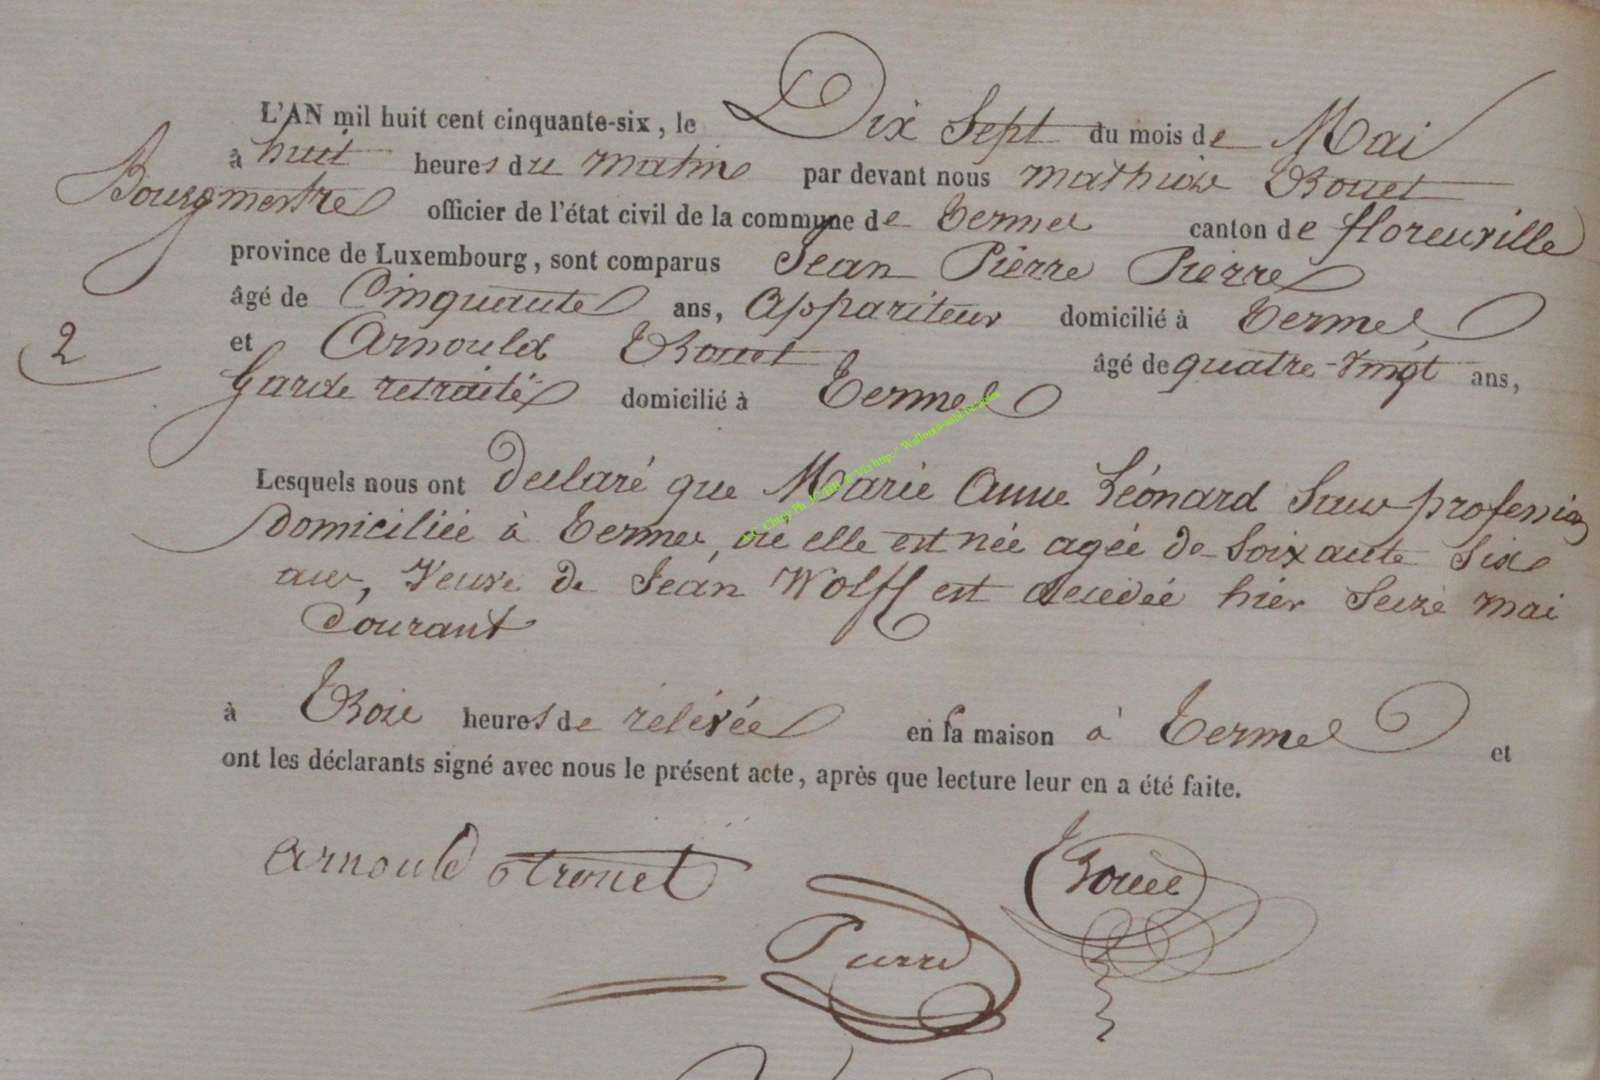 L'AN mil huit cent cinquante-six, le Dix Sept du mois de Mai
à huit heures du matin par devant nous Mathieu Trouet
Bourgmestre officier de l'état civil de la commune de Termes canton de florenville
province de Luxembourg, sont comparus Jean Pierre Pierre
âgé de Cinquante ans, Appariteur domicilié à Termes
2
et Arnould Trouet âgé de quatre-vingt ans,
Garde retraité domicilié à Termes
Lesquels nous ont declaré que Marie Anne Léonard Sans profession
domiciliée à Termes, où elle est née agée de Soixante Six
ans, Veuve de Jean Wolff est decedée hier Seize mai
Courant
à Trois heures de relevée en sa maison à Termes et
ont les déclarants signé avec nous le présent acte, après que lecture leur en a été faite.
Arnould Trouet
Trouet
Pierre